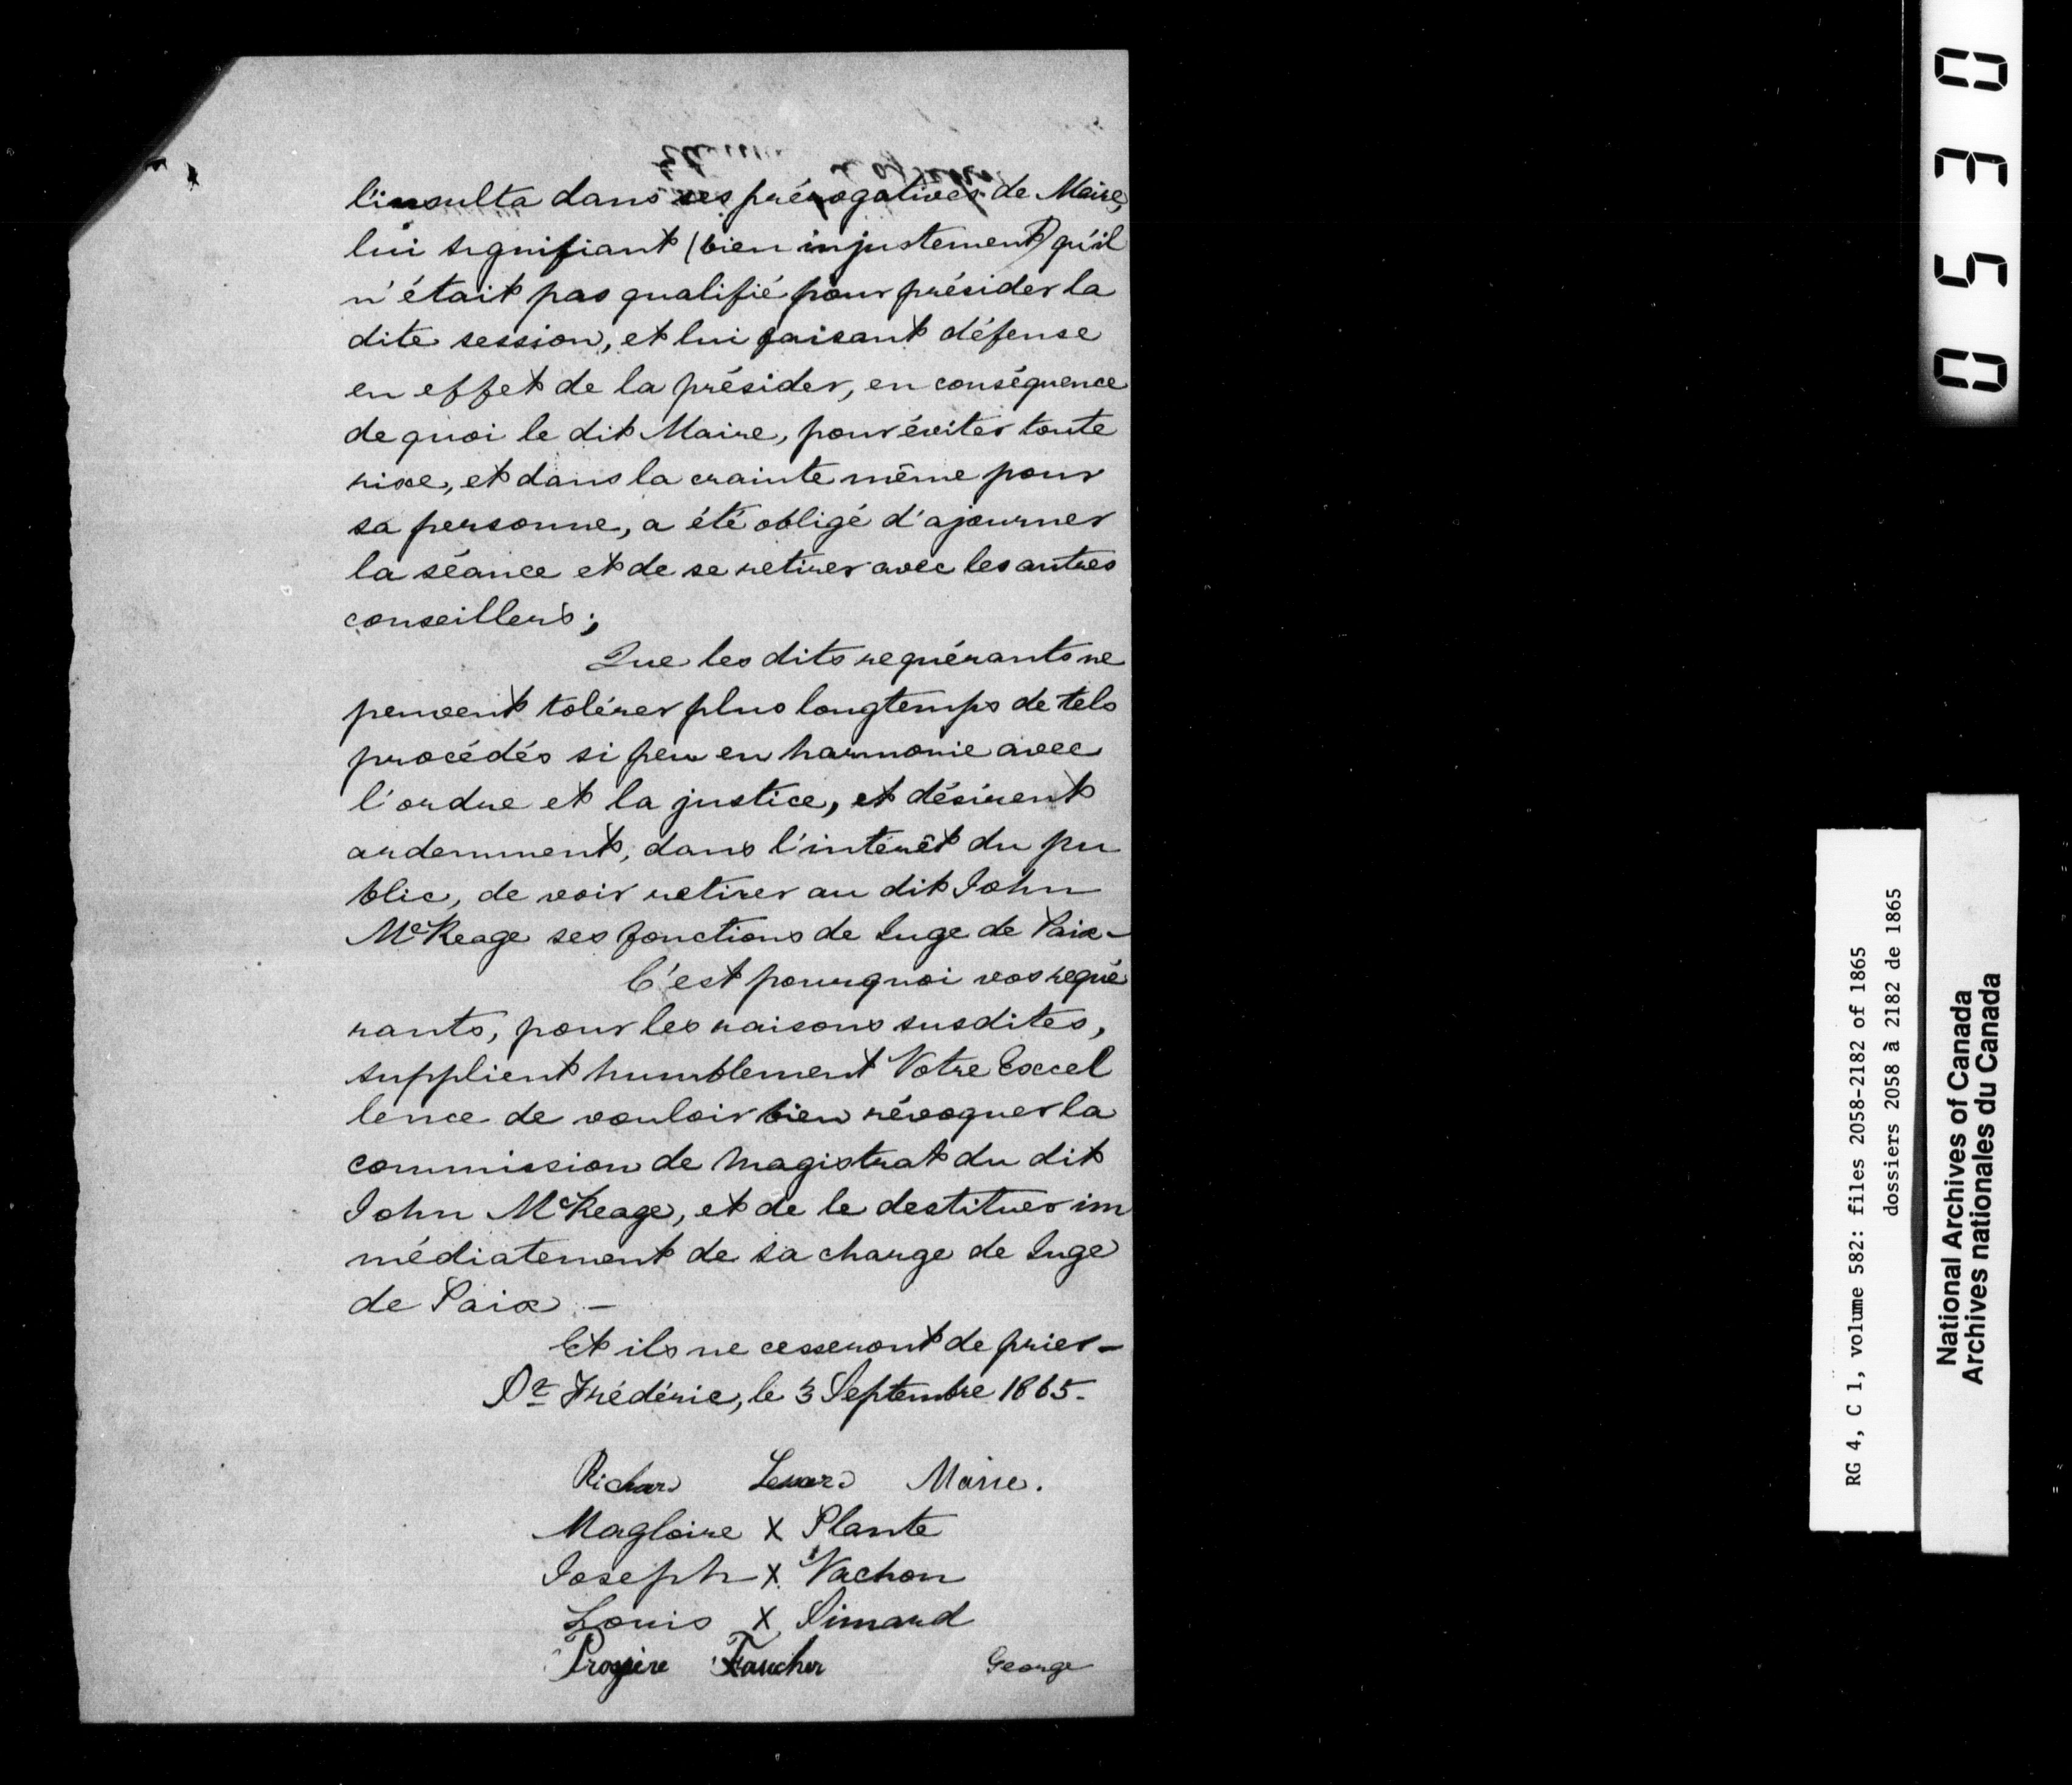 l'insulta dans ses prérogatives de Maire,
lui signifiant (bien injustement) qu'il
n'était pas qualifié pour présider la
dite session, et lui faisant défense
en effet de la présider, en conséquence
de quoi le dit Maire, pour éviter toute
rixe, et dans la crainte même pour
sa personne, a été obligé d'ajourner
la séance et de se retirer avec les autres
conseillers;
Que les dits requérants ne
peuvent tolérer plus longtemps de tels
procédés si peu en harmonie avec
l'ordre et la justice, et désirent
ardemment, dans l'intérêt du pu
blic, de voir retirer au dit John
McKeage ses fonctions de Juge de Paix-
C'est pourquoi vos requé
rants, pour les raisons susdites,
supplient humblement Votre Excel
lence de vouloir bien révoquer la
commission de magistrat du dit
John McKeage, et de le destituer im
médiatement de sa charge de Juge
de Paix -
Et ils ne cesseront de prier-
St Frédéric, le 3 Septembre 1865-
Richard Maire.
Magloire X Plante
Joseph X Vachon
Louis X Simard
Faucher George
0530
RG 4, C 1, volume 582: files 2058-2182 of 1865
dossiers 2058 à 2182 de 1865
National Archives of Canada
Archives nationales du Canada